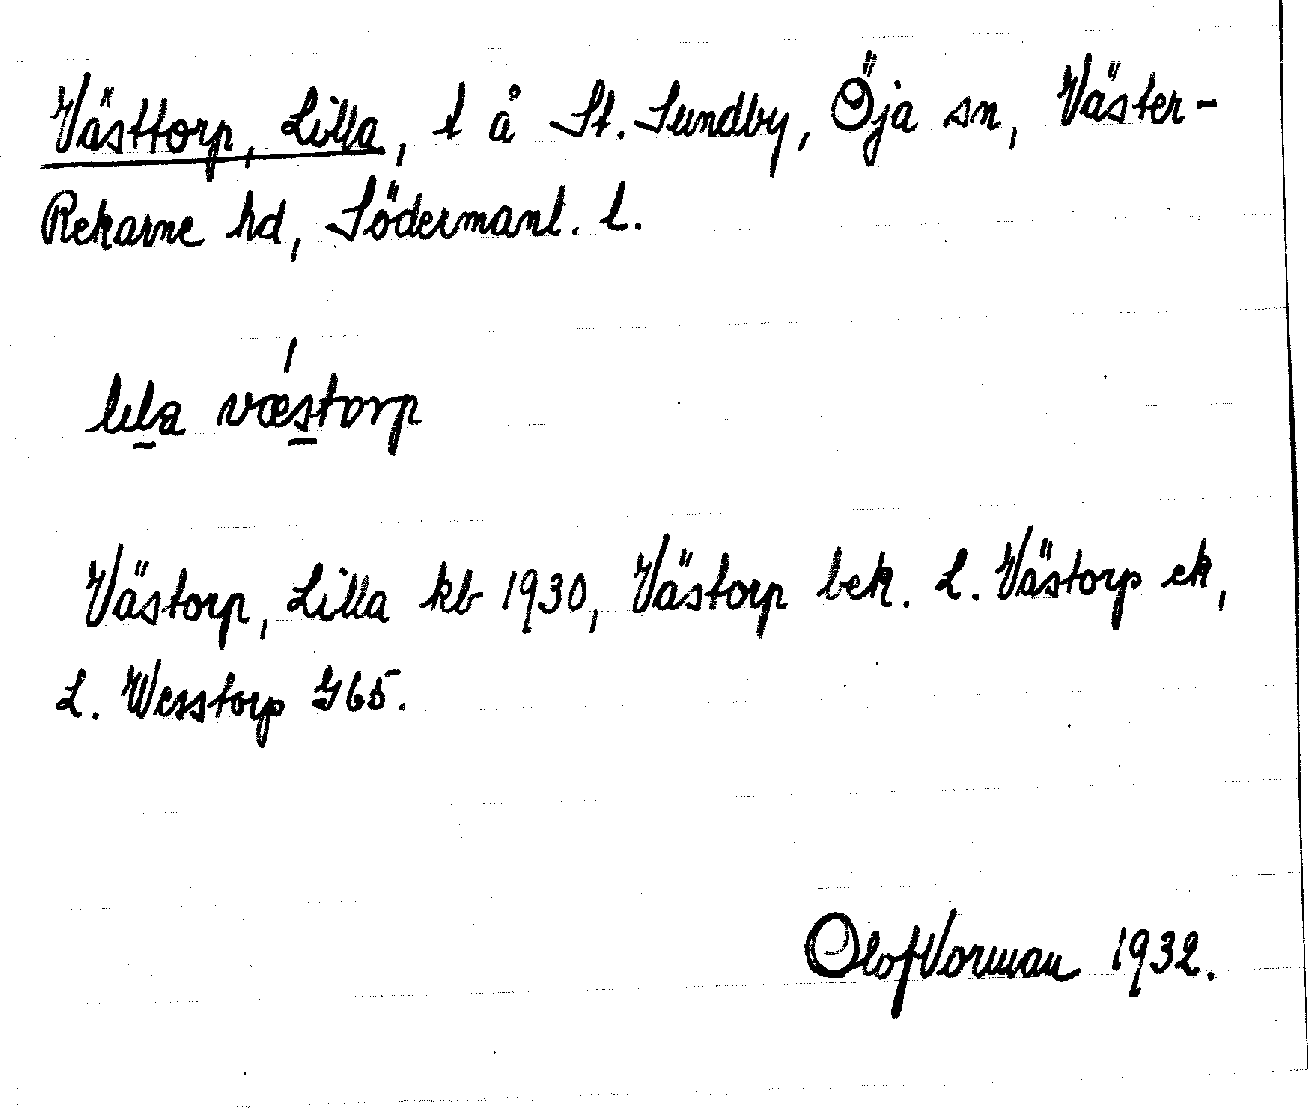 Västtorp, Lilla, t å St. Sundby, Öja sn, Väster-
Rekarne hd, Södermanl. l.
lila væstorp
Västorp, Lilla kb 1930, Västorp bek. L. Västorp ek,
L. Wesstorp G65.
Olof Vorman 1932.